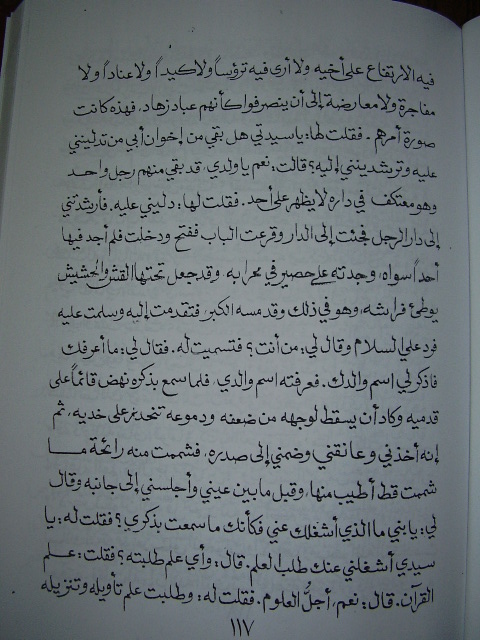 فيه الارتفاع على أخيه ولا أرى فيه ترؤساً ولا كيداً ولا عناداً ولا
مفاجرة ولا معارضة إلى أن ينصرفوا كأنهم عباد زهاد، فهذه كانت
صورة أمرهم. فقلت لها: يا سيدتي هل بقي من إخوان أبي من تدلينني
عليه وترشدينني إليه؟ قالت: نعم يا ولدي، قد بقي منهم رجل واحد
وهو معتكف في داره لا يظهر على أحد. فقلت لها: دليني عليه. فأرشدتني
إلى دار الرجل فجئت إلى الدار وقرعت الباب ففتح ودخلت فلم أجد فيها
أحداً سواه، وجدته على حصير في محرابه. وقد جعل تحتها القش والحشيش
يوطئ فراشه، وهو في ذلك وقد مسه الكبر، فتقدمت إليه وسلمت عليه
فرد علي السلام وقال لي: من أنت؟ فتسميت له. فقال لي: ما أعرفك
فاذكر لي اسم والدك. فعرفته اسم والدي، فلما سمع بذكره نهض قائماً على
قدميه وكاد أن يسقط لوجهه من ضعفه ودموعه تنحدر على خديه، ثم
إنه أخذني وعانقني وضمني إلى صدره، فشممت منه رائحة ما
شممت قط أطيب منها، وقبل ما بين عيني وأجلسني إلى جانبه وقال
لي: يا بني ما الذي أشغلك عني فكأنك ما سمعت بذكري؟ فقلت له: يا
سيدي أشغلني عنك طلب العلم. قال: وأي علم طلبته؟ فقلت: علم
القرآن. قال: نعم، أجلُّ العلوم. فقلت له: وطلبت علم تأويله وتنزيله
١١٧